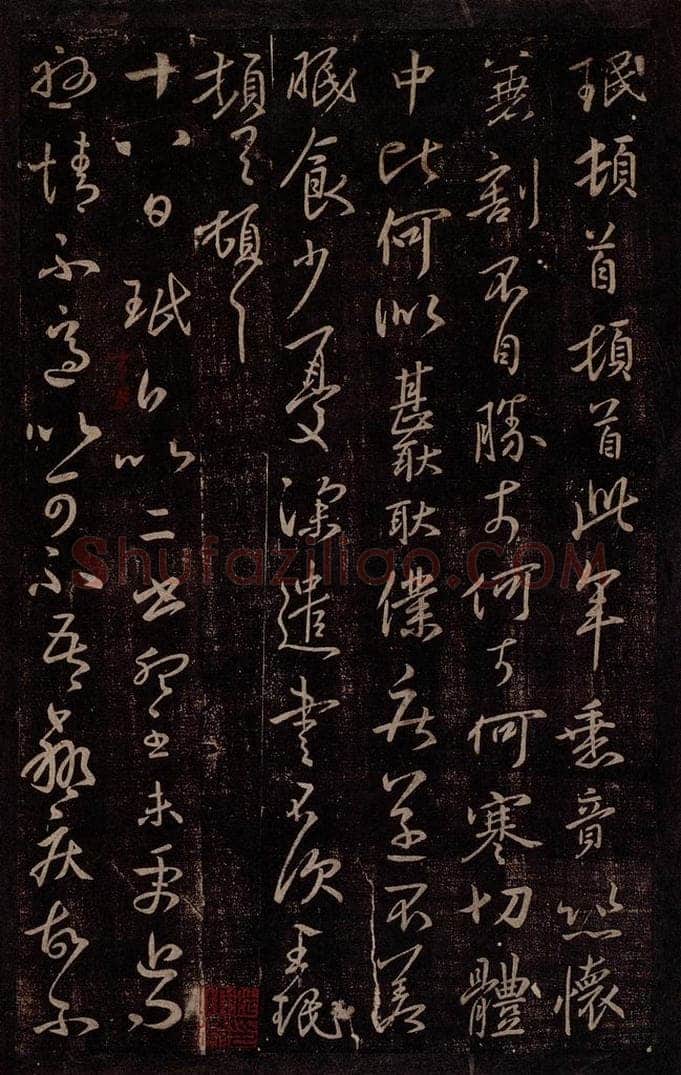 珉頓首頓首此年垂竟懷
兼割不自勝奈何奈何寒切體
中比何似甚耿耿僕疾遂不差
眠食少憂深遣書不次王珉
頓首頓首
十八日珉白以二未
懸情不適以可不吾羸疾故
Shufaziliao.COM